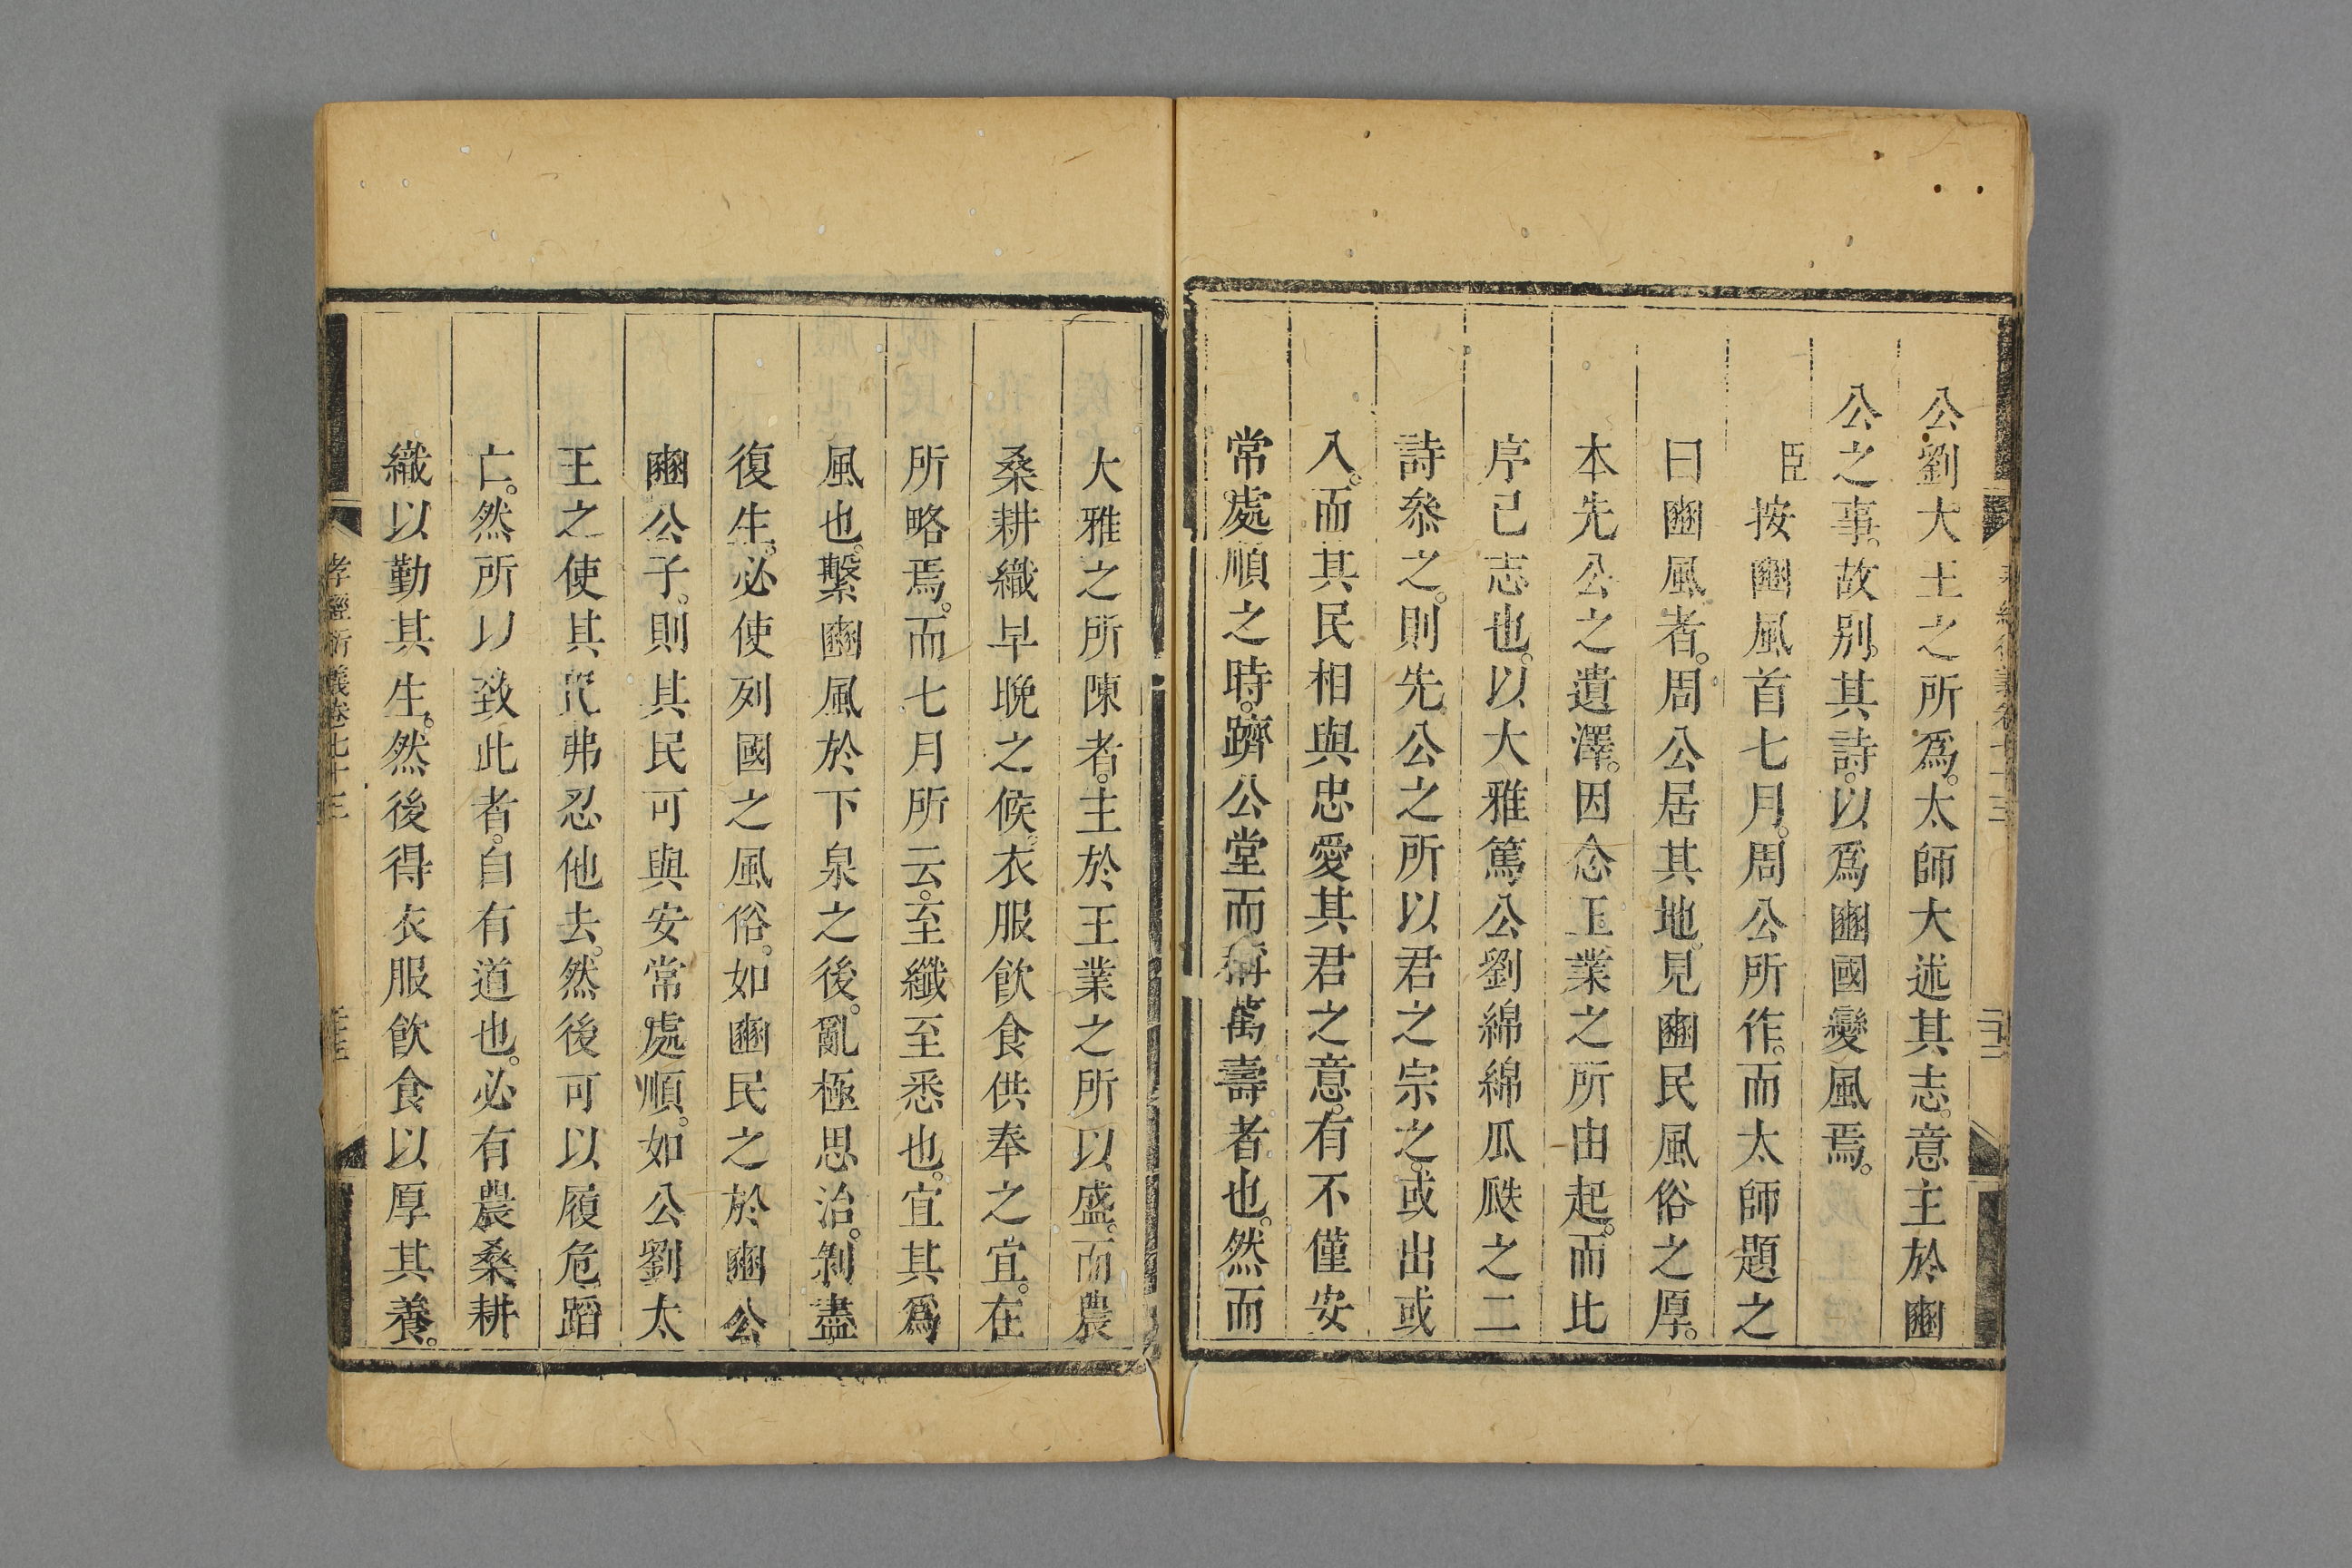 公劉大王之所爲。太師大述其志。意主於豳
公之事。故别。其詩。以爲豳國變風焉。
臣按豳風首七月。周公所作。而太師題之
曰豳風者。周公居其地。見豳民風俗之厚。
本先公之遺澤。因念王業之所由起。而比
序己志也。以大雅篤公劉綿綿瓜瓞之二
詩叅之。則先公之所以君之宗之。或出或
入。而其民相與忠愛其君之意。有不僅安
常處順之時。躋公堂而稱萬壽者也。然而
大雅之所陳者。主於王業之所以盛。而農
桑耕織早晚之候。衣服飲食供奉之宜。在
所略焉。而七月所云。至纖至悉也。宜其爲
風也。繫豳風於下泉之後。亂極思治。剝盡
復生。必使列國之風俗。如豳民之於豳公
豳公子。則其民可與安常處順。如公劉太
王之使其民弗忍他去。然後可以履危蹈
亡。然所以致此者。自有道也。必有農桑耕
織以勤其生。然後得衣服飲食以厚其養。
孝經衍義卷七十三